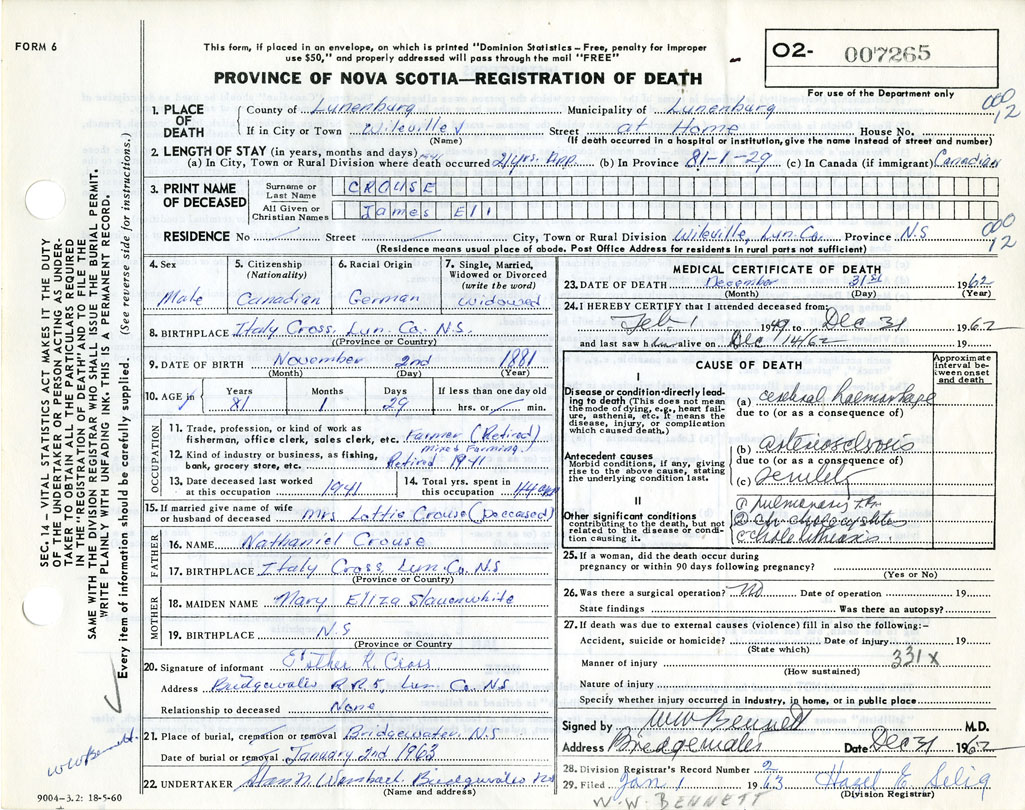 FORM 6
This form, if placed in an envelope, on which is printed "Dominion Statistics – Free, penalty for improper
use $50," and properly addressed will pass through the mail "FREE"
PROVINCE OF NOVA SCOTIA—REGISTRATION OF DEATH
O2- 007265
For use of the Department only
1. PLACE OF DEATH
County of Lunenburg Municipality of Lunenburg
000 12
If in City or Town Wileville Street at Home House No.
(Name) (If death occurred in a hospital or institution, give name instead of street and number)
2. LENGTH OF STAY (in years, months and days)
(a) In City, Town or Rural Division where death occurred 21 yrs. App. (b) In Province 81-1-29 (c) In Canada (if immigrant) Canadian
3. PRINT NAME OF DECEASED
Surname or Last Name CROUSE
All Given or Christian Names James Eli
RESIDENCE No Street City, Town or Rural Division Wileville, Lun. Co. Province N.S
000 12
(Residence means usual place of abode. Post Office Address for residents in rural parts not sufficient)
4. Sex Male
5. Citizenship (Nationality) Canadian
6. Racial Origin German
7. Single, Married, Widowed or Divorced (write the word) widowed
8. BIRTHPLACE Italy Cross, Lun. Co. N.S.
(Province or Country)
9. DATE OF BIRTH November 2nd 1881
(Month) (Day) (Year)
10. AGE in Years 81 Months 1 Days 29 If less than one day old hrs. or min.
OCCUPATION
11. Trade, profession, or kind of work as
fisherman, office clerk, sales clerk, etc. Farmer (Retired)
12. Kind of industry or business, as fishing, mixed Farming)
bank, grocery store, etc. Retired 1941
13. Date deceased last worked at this occupation 1941
14. Total yrs. spent in this occupation 44
15. If married give name of wife
or husband of deceased Mrs Lottie Crouse (Deceased)
FATHER
16. NAME Nathaniel Crouse
17. BIRTHPLACE Italy Cross, Lun. Co. N.S
(Province or Country)
MOTHER
18. MAIDEN NAME Mary Eliza Slauenwhite
19. BIRTHPLACE N.S
(Province or Country)
20. Signature of informant Esther R. Cross
Address Bridgewater R.R.5, Lun. Co. N.S
Relationship to deceased None
21. Place of burial, cremation or removal Bridgewater, N.S
Date of burial or removal January 2nd 1963
22. UNDERTAKER Bridgewater N.S
(Name and address)
9004-3.2: 18-5-60
MEDICAL CERTIFICATE OF DEATH
23. DATE OF DEATH December 31st 1962
(Month) (Day) (Year)
24. I HEREBY CERTIFY that I attended deceased from:
Feb 1 1949 to Dec 31 1962
and last saw him alive on Dec 14/62 19
CAUSE OF DEATH
Approximate interval between onset and death
I
Disease or condition directly leading to death (This does not mean
the mode of dying, e.g., heart failure, asthenia, etc. It means the
disease, injury, or complication
which caused death.)
(a) cerebral haemorrhage
due to (or as a consequence of)
Antecedent causes
Morbid conditions, if any, giving
rise to the above cause, stating
the underlying condition last.
(b) arteriosclerosis
due to (or as a consequence of)
(c) Senility
II
Other significant conditions
contributing to the death, but not
related to the disease or condition causing it.
pulmonary
ch cholecystitis
cholelithiasis
25. If a woman, did the death occur during
pregnancy or within 90 days following pregnancy?
(Yes or No)
26. Was there a surgical operation? No Date of operation 19
State findings Was there an autopsy?
27. If death was due to external causes (violence) fill in also the following:-
Accident, suicide or homicide? Date of injury 19
(State which)
Manner of injury 331x
(How sustained)
Nature of injury
Specify whether injury occurred in industry, in home, or in public place
Signed by WW Bennett M.D.
Address Bridgewater Date Dec 31 1962
28. Division Registrar's Record Number 2
29. Filed Jan 1 1963 Hazel E. Selig
(Division Registrar)
W.W. BENNETT
SEC. 14 – VITAL STATISTICS ACT MAKES IT THE DUTY
OF THE UNDERTAKER OR PERSON ACTING AS UNDERTAKER
TO OBTAIN ALL THE PARTICULARS REQUIRED
IN THE "REGISTRATION OF DEATH" AND TO FILE THE
SAME WITH THE DIVISION REGISTRAR WHO SHALL ISSUE THE BURIAL PERMIT.
WRITE PLAINLY WITH UNFADING INK. THIS IS A PERMANENT RECORD.
Every item of information should be carefully supplied. (See reverse side for instructions.)
WW Bennett